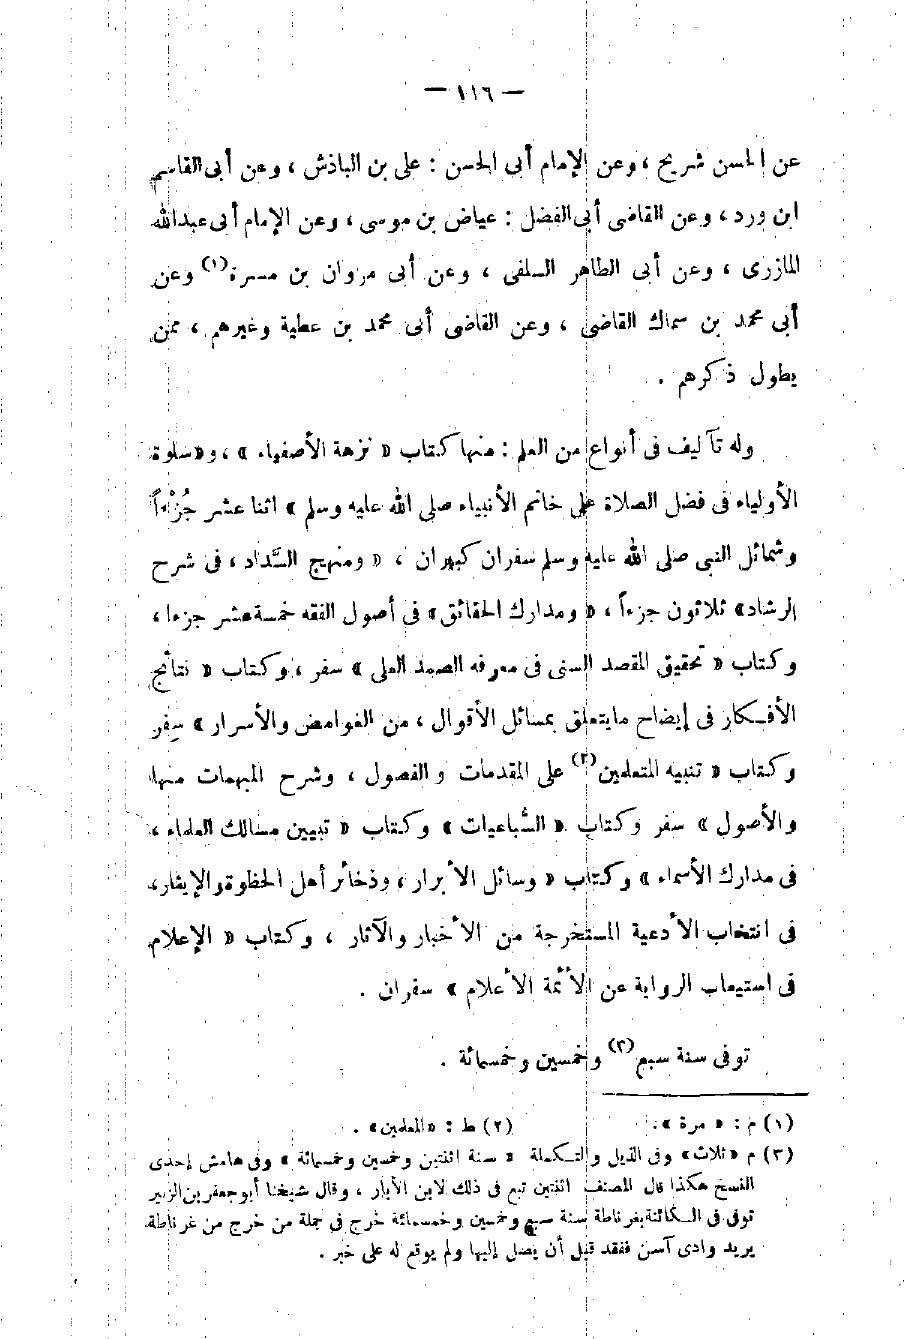 — ١١٦ —
عن الحسن شريح ، وعن الإمام أبى الحسن : على بن الباذش ، وعن أبى القاسم
ابن ورد ، وعن القاضى أبى الفضل : عياض بن موسى ، وعن الإمام أبى عبدالله
المازرى ، وعن أبى الطاهر السلفى ، وعن أبى مروان بن مسرة(١) وعن
أبى محمد بن سماك القاضى ، وعن القاضى أبى محمد بن عطية وغيرهم ، ممن
يطول ذكرهم .
وله تآليف فى أنواع من العلم : منها كتاب « نزهة الأصفياء » ، و«سلوة
الأولياء فى فضل الصلاة على خاتم الأنبياء صلى الله عليه وسلم » اثنا عشر جُزْءاً
وشمائل النبى صلى الله عليه وسلم سفران كبيران ، « ومنهج السَّداد ، فى شرح
الرشاد» ثلاثون جزءاً ، « ومدارك الحقائق» فى أصول الفقه خمسة عشر جزءا ،
وكتاب « تحقيق المقصد السنى فى معرفه الصمد العلى » سفر ، وكتاب « نتائج
الأفكار فى إيضاح مايتعلق بمسائل الأقوال ، من الغوامض والأسرار » سِفر
وكتاب « تنبيه المتعلمين(٢) على المقدمات والفصول ، وشرح المبهمات منها،
والأصول » سفر وكتاب « السُّباعيات » وكتاب « تبيين مسالك العلماء ،
فى مدارك الأسماء » وكتاب « وسائل الأبرار ، وذخائر أهل الحظوة والإيثار،
فى انتخاب الأدعية المستخرجة من الأخبار والآثار ، وكتاب « الإعلام
فى استيعاب الرواية عن الأئمة الأعلام » سفران .
توفى سنة سبع(٣) وخمسين وخمسمائة .
(١) م : « مرة » . (٢) ط : «المعلمين» .
(٣) م «ثلاث» وفى الذيل والتكملة « سنة اثنتين وخمسين وخمسمائة » وفى هامش إحدى
النسخ هكذا قال المصنف اثنتين تبع فى ذلك لابن الأبار ، وقال شيخنا أبو جعفر بن الزبير
توفى فى الكائنة بغرناطة سنة سبع وخمسين وخمسمائة خرج فى جملة من خرج من غرناطة
يريد وادى آسن ففقد قبل أن يصل إليها ولم يوقع له على خبر .